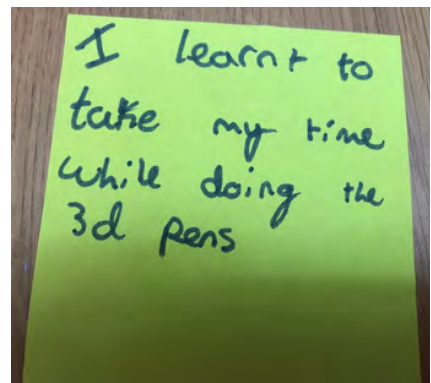 I learnt to
take my time
while doing the
3d pens